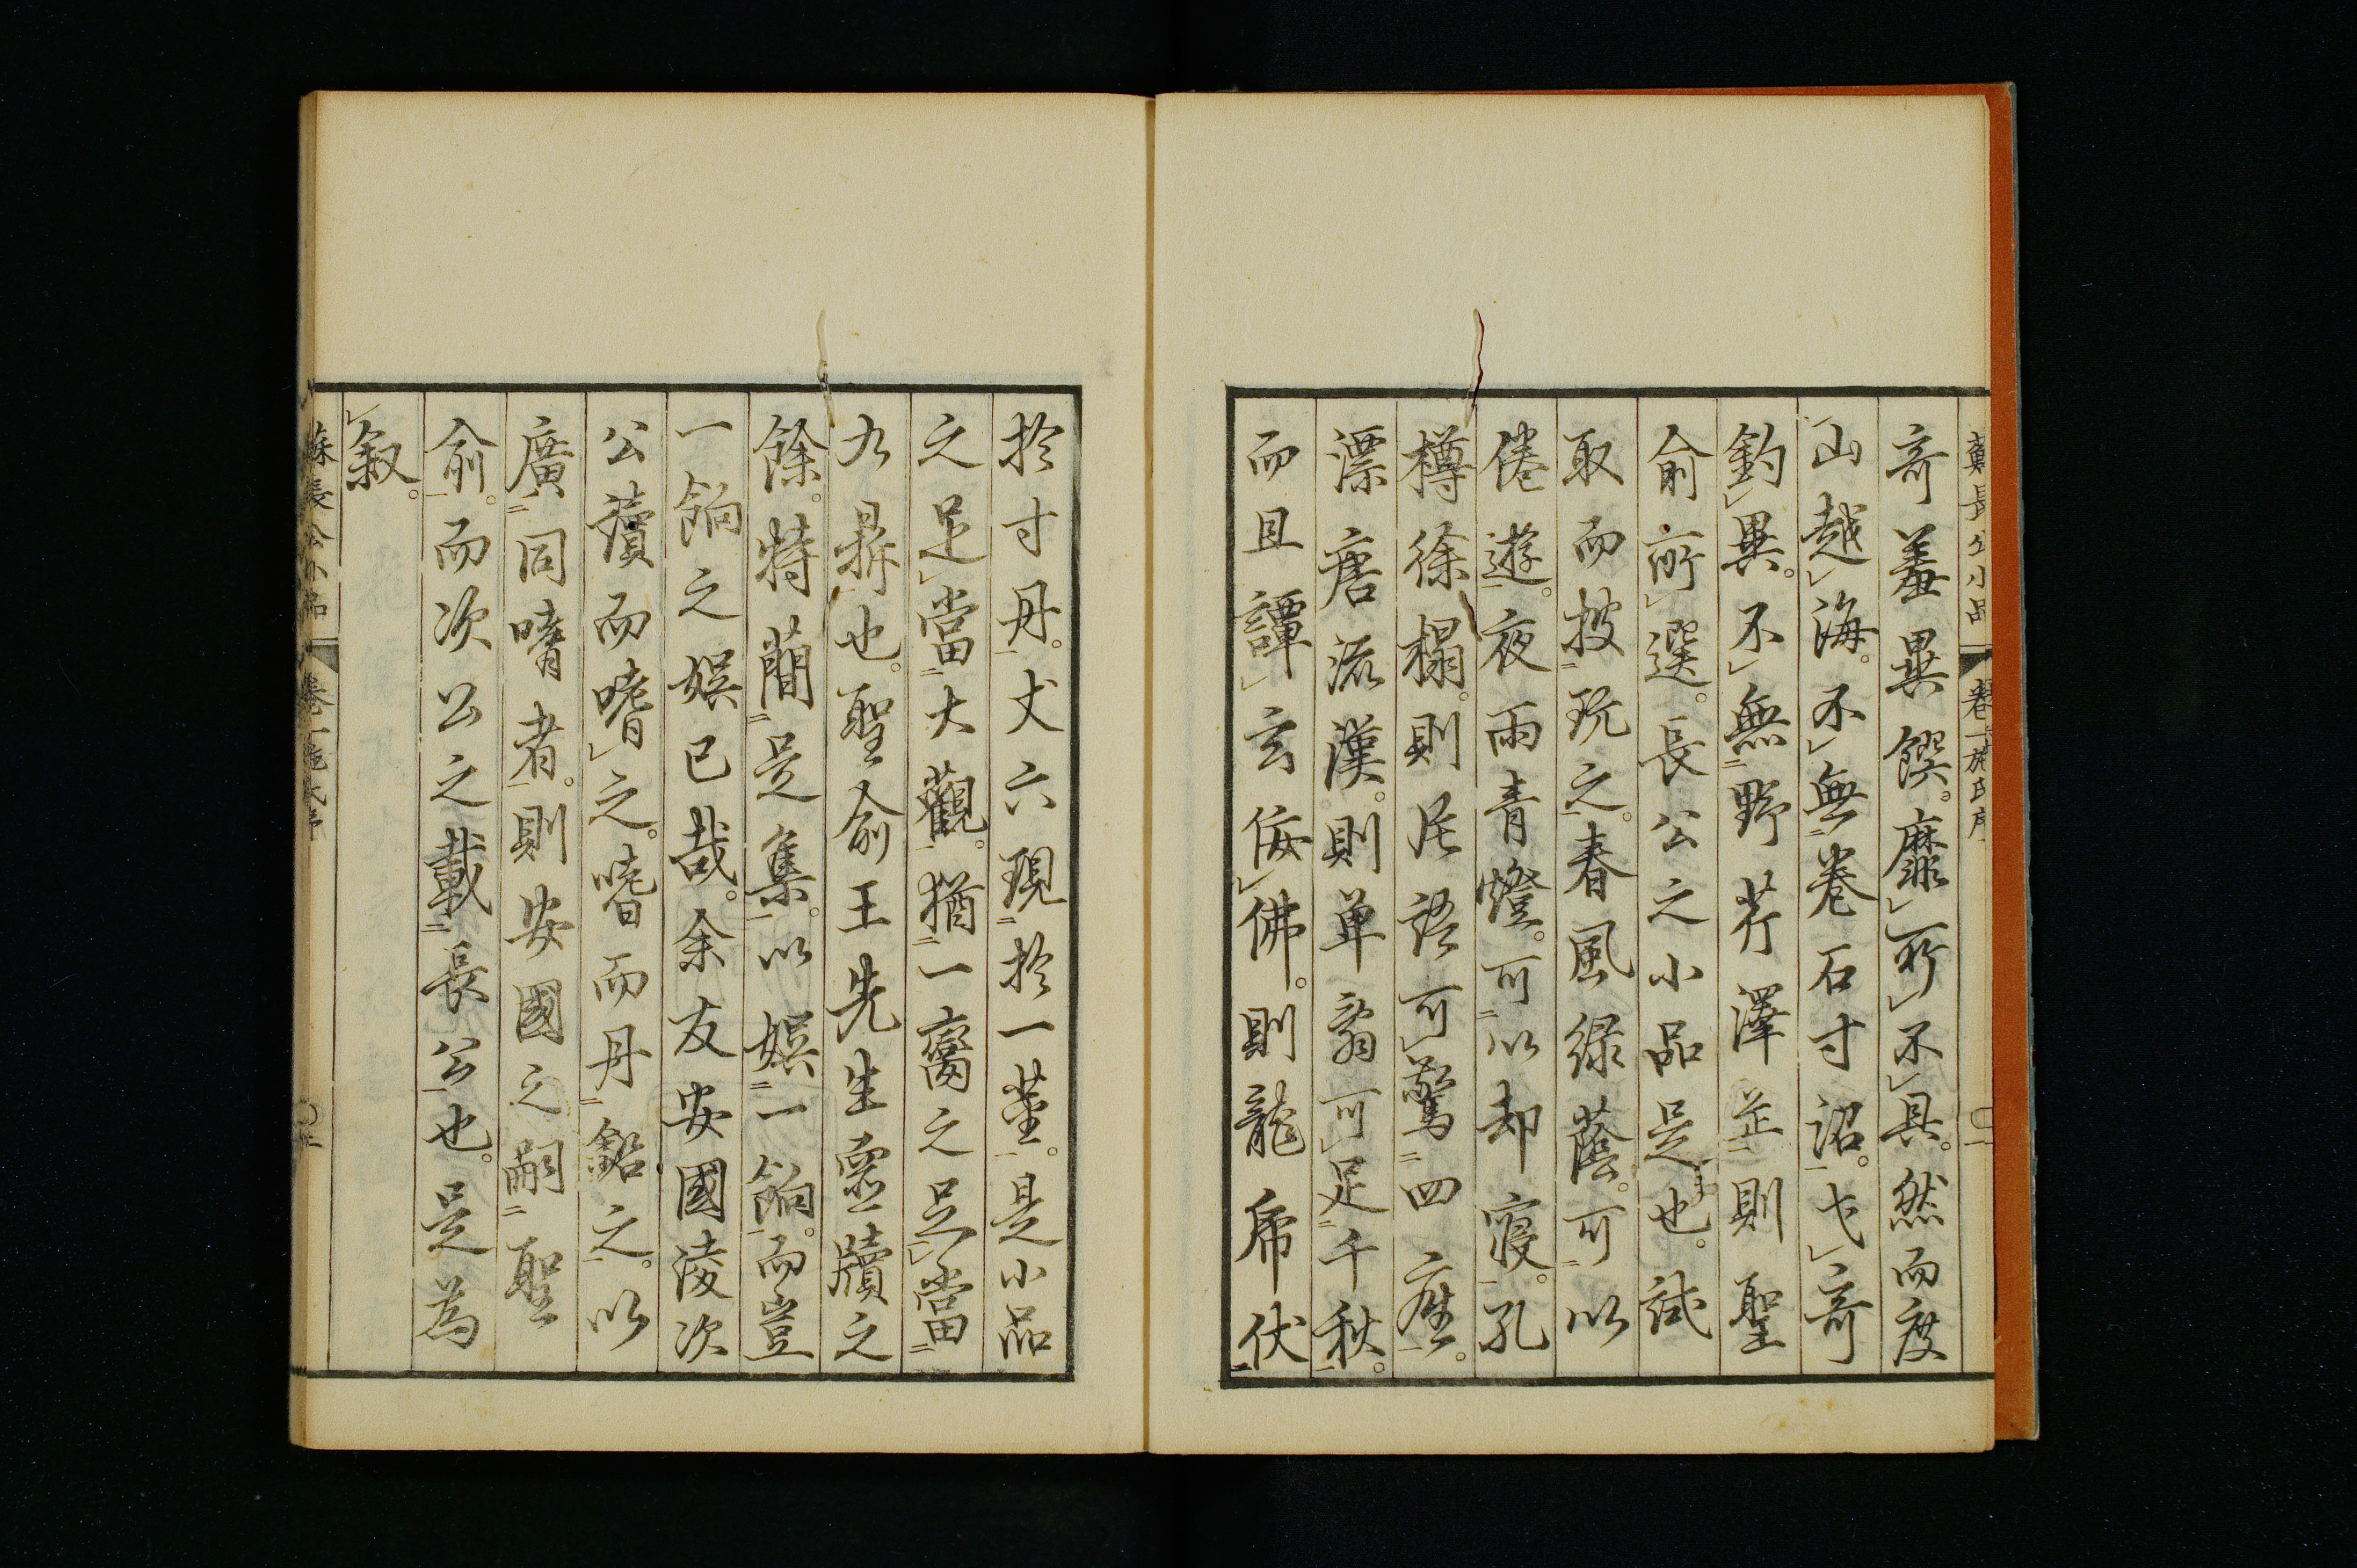 奇羞異饌。靡所不具。然而度
山越海。不無卷石寸沼。弋奇
釣異。不無野芹澤芷則聖
俞所選。長公之小品是也。試
取而披玩之。春風綠蔭。可以
倦遊。夜雨青燈。可以却寢。孔
樽徐榻。則片語可驚四座。
漂唐流漢。則單翕可足千秋。
而且譚玄佞佛。則龍席伏
於寸丹。丈六現於一莖。是小品
之足當大觀。猶一臠之足當
九鼎也。聖俞王先生靈牘之
餘。特蕳是集。以娛一餉。而豈
一餉之娛已哉。余友安國淩次
公讀而嗜之。嗜而丹鉛之。以
廣同嗜者。則安國之嗣聖
俞。而次公之載長公也。是為
叙。
蘇長公小品 卷一施氏序